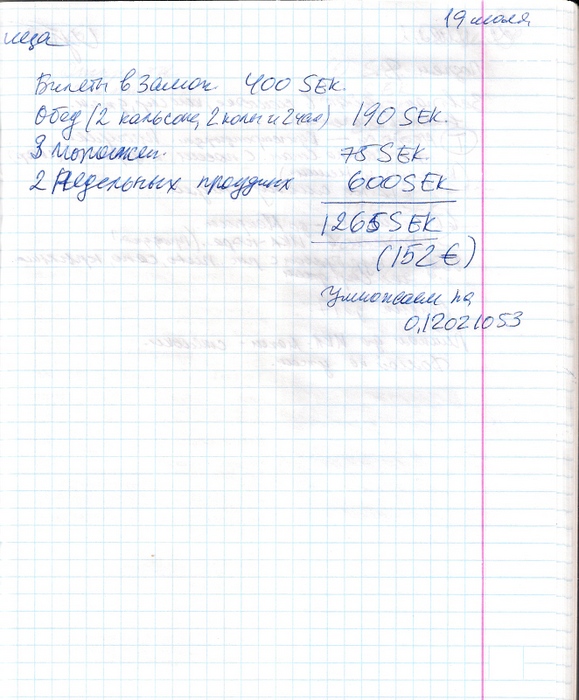 19 июля
ица
Билеты в Замок 400 SEK.
Обед (2 кальсоне, 2 колы и 2 чая) 190 SEK.
3 Морожен. 75 SEK
2 Недельных проездных 600 SEK
1265 SEK
(152 €)
Умножаем на
0,12021053